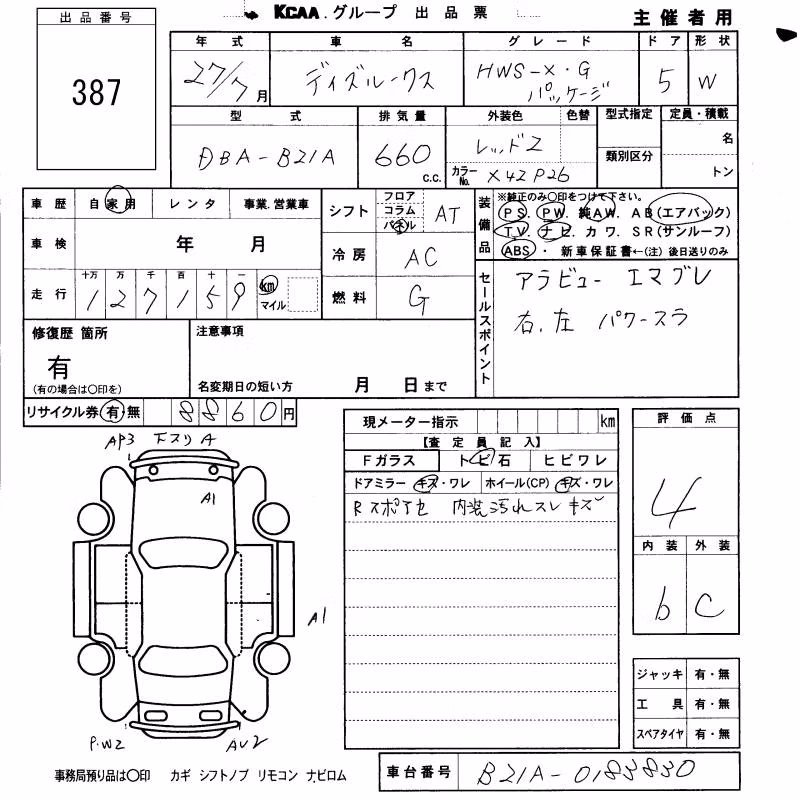 KCAA.グループ 出品票
主催者用
出品番号
387
年式 車名 グレード ドア 形状
27/7月 ディズルークス HWS-X・G パッケージ 5 W
型式 排気量 外装色 色替 型式指定 定員・積載
DBA-B21A 660 C.C. レッド2 類別区分 名
カラーNo. X42P26 トン
車歴 自家用 レンタ 事業.営業車
シフト フロア コラム パネル AT
装備品 ※純正のみ○印をつけて下さい。
PS. PW. 純AW. AB(エアバック)
TV. ナビ. カワ. SR(サンルーフ)
ABS・新車保証書←(注)後日送りのみ
車検 年 月
冷房 AC
走行 十万 万 千 百 十 一
127159 km マイル
燃料 G
セールスポイント
アラビュー エマブレ
右.左 パワースラ
修復歴 箇所
有
(有の場合は○印を)
注意事項
名変期日の短い方 月 日まで
リサイクル券 有・無 8860円
現メーター指示 km
【査定員記入】
Fガラス トビ石 ヒビワレ
ドアミラー キズ・ワレ ホイール(CP) キズ・ワレ
Rスポイセ 内装汚れスレキズ
評価点
4
内装 外装
b C
AP3 下スリA
A1
A1
P.W2 AU2
ジャッキ 有・無
工具 有・無
スペアタイヤ 有・無
事務局預り品は○印 カギ シフトノブ リモコン ナビロム
車台番号 B21A-0183830